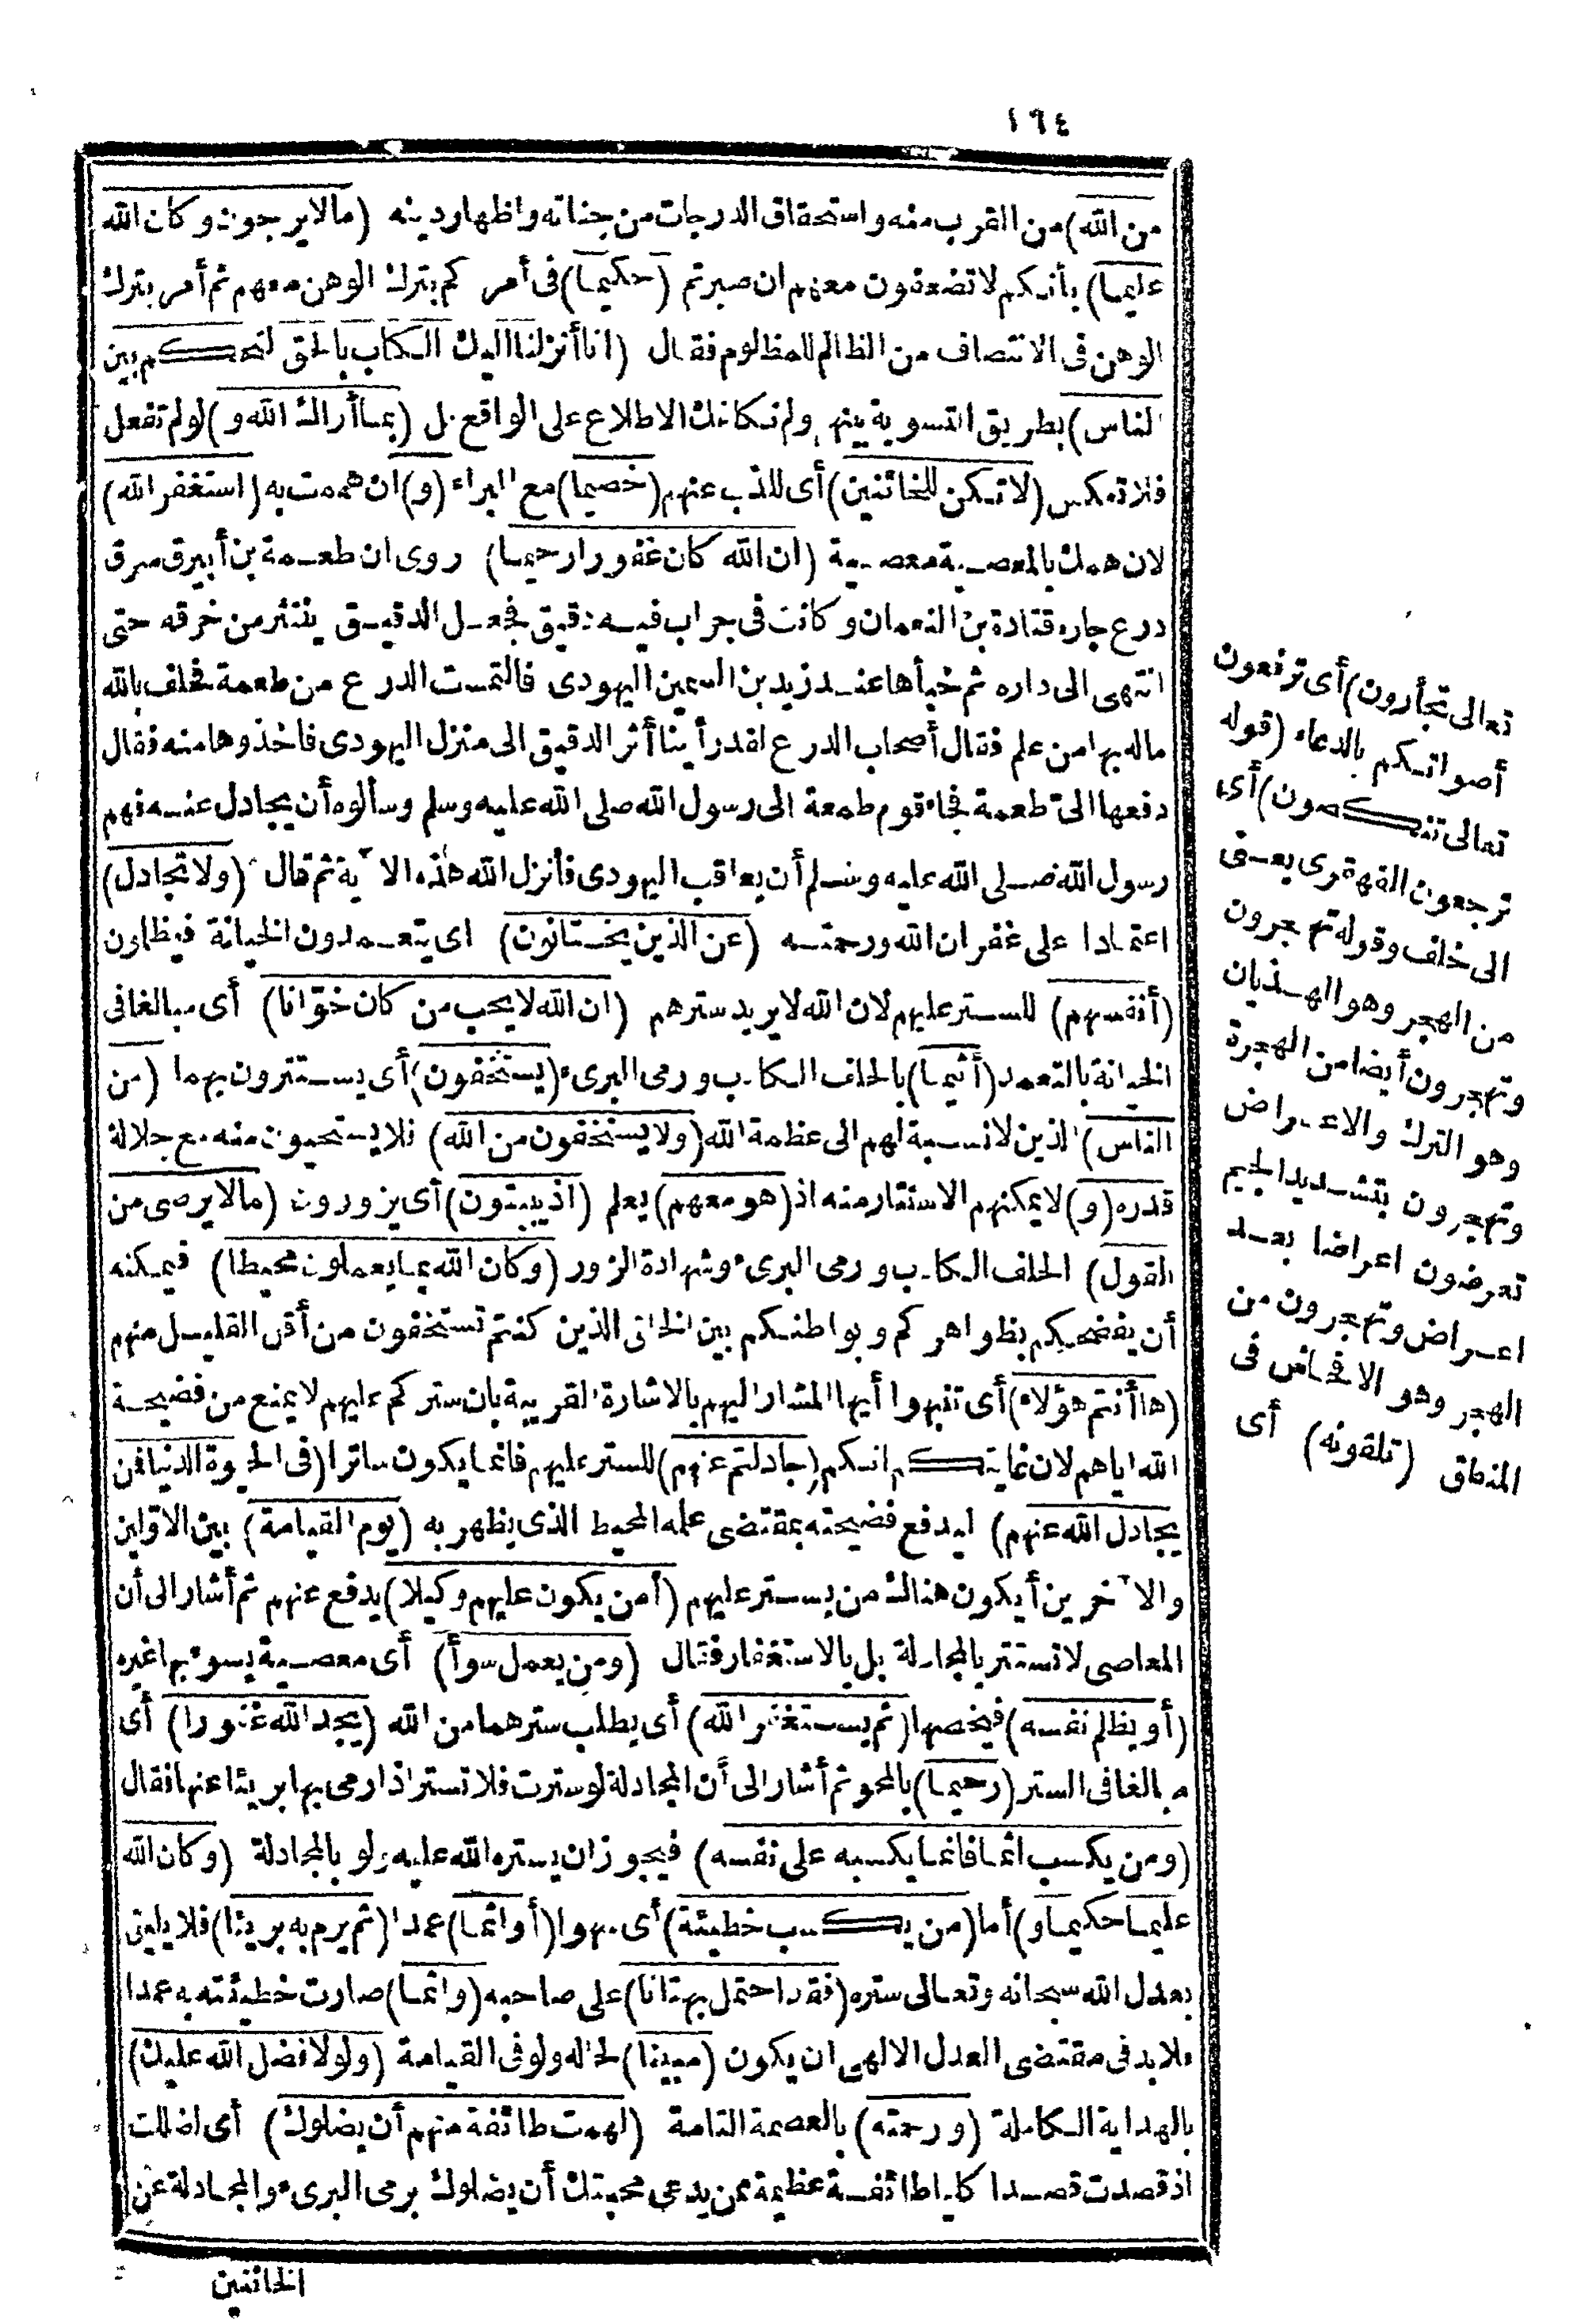 ١٦٤
من الله) من القرب منه واستحقاق الدرجات من جناته واظهار دينه (مالا يرجون وكان الله
عليما) بأنكم لا تضعفون معهم ان صبرتم (حكيما) فى أمركم بترك الوهن معهم ثم أمر بترك
الوهن فى الانتصاف من الظالم للمظلوم فقال (انا أنزلنا اليك الكتاب بالحق لتحكم بين
الناس) بطريق التسوية بينهم ولم نكلفك الاطلاع على الواقع بل (بما أراك الله و) لو لم تفعل
فلا تعكس (لا تكن للخائنين) أى للذب عنهم (خصيما) مع البراء (و) ان هممت به (استغفر الله)
لان همك بالمعصية معصية (ان الله كان غفورا رحيما) روى ان طعمة بن أبيرق سرق
درع جاره قتادة بن النعمان وكانت فى جراب فيه دقيق فجعل الدقيق ينتثر من خرقه حتى
انتهى الى داره ثم خبأها عند زيد بن السمين اليهودى فالتمست الدرع من طعمة فحلف بالله
ماله بها من علم فقال أصحاب الدرع لقد رأينا أثر الدقيق الى منزل اليهودى فاخذوها منه فقال
دفعها الىّ طعمة فجاء قوم طعمة الى رسول الله صلى الله عليه وسلم وسألوه أن يجادل عنه فهم
رسول الله صلى الله عليه وسلم أن يعاقب اليهودى فأنزل الله هذه الآية ثم قال (ولا تجادل)
اعتمادا على غفران الله ورحمته (عن الذين يختانون) اى يتعمدون الخيانة فيظلمون
(أنفسهم) للستر عليهم لان الله لا يريد سترهم (ان الله لا يحب من كان خوّانا) أى مبالغا فى
الخيانة بالتعمد (أثيما) بالحلف الكاذب ورمى البرىء (يستخفون) أى يستترون بهما (من
الناس) الذين لا نسبة لهم الى عظمة الله (ولا يستخفون من الله) فلا يستحيون منه مع جلالة
قدره (و) لا يمكنهم الاستتار منه اذ (هو معهم) يعلم (اذ يبيتون) أى يزورون (مالا يرضى من
القول) الحلف الكاذب ورمى البرىء وشهادة الزور (وكان الله بما يعملون محيطا) فيمكنه
أن يفضحكم بظواهركم وبواطنكم بين الخلق الذين كنتم تستخفون من أقل القليل منهم
(ها أنتم هؤلاء) أى تنبهوا أيها المشار اليهم بالاشارة القريبة بان ستركم عليهم لا يمنع من فضيحة
الله اياهم لان غايتكم انكم (جادلتم عنهم) للستر عليهم فانما يكون ساترا (فى الحيوة الدنيا فمن
يجادل الله عنهم) ليدفع فضيحته بمقتضى علمه المحيط الذى يظهر به (يوم القيامة) بين الاولين
والآخرين أيكون هنالك من يستر عليهم (أمن يكون عليهم وكيلا) يدفع عنهم ثم أشار الى أن
المعاصى لا تستتر بالمجادلة بل بالاستغفار فقال (ومن يعمل سوأ) أى معصية يسوء بها غيره
(أو يظلم نفسه) فيخصها (ثم يستغفر الله) أى يطلب سترهما من الله (يجد الله غفورا) أى
مبالغا فى الستر (رحيما) بالمحو ثم أشار الى أن المجادلة لو سترت فلا تستر اذا رمى بها بريئا عنها فقال
(ومن يكسب اثما فانما يكسبه على نفسه) فيجوز ان يستره الله عليه ولو بالمجادلة (وكان الله
عليما حكيما و) أما (من يكسب خطيئة) أى سهوا (أو اثما) عمدا (ثم يرم به بريئا) فلا يليق
بعدل الله سبحانه وتعالى ستره (فقد احتمل بهتانا) على صاحبه (واثما) صارت خطيئته به عمدا
ولا بد فى مقتضى العدل الالهى ان يكون (مبينا) لحاله ولو فى القيامة (ولولا فضل الله عليك)
بالهداية الكاملة (ورحمته) بالعصمة التامة (لهمت طائفة منهم أن يضلوك) أى لضللت
اذ قصدت قصدا كليا طائفة عظيمة ممن يدعى محبتك أن يضلوك برمى البرىء والمجادلة عن
الخائنين
تعالى تجأرون) أى ترفعون
أصواتكم بالدعاء (قوله
تعالى تنكصون) أى
ترجعون القهقرى يعنى
الى خلف وقوله تهجرون
من الهجر وهو الهذيان
وتهجرون أيضا من الهجرة
وهو الترك والاعراض
وتهجرون بتشديد الجيم
تعرضون اعراضا بعد
اعراض وتهجرون من
الهجر وهو الافحاش فى
المنطق (تلقونه) أى